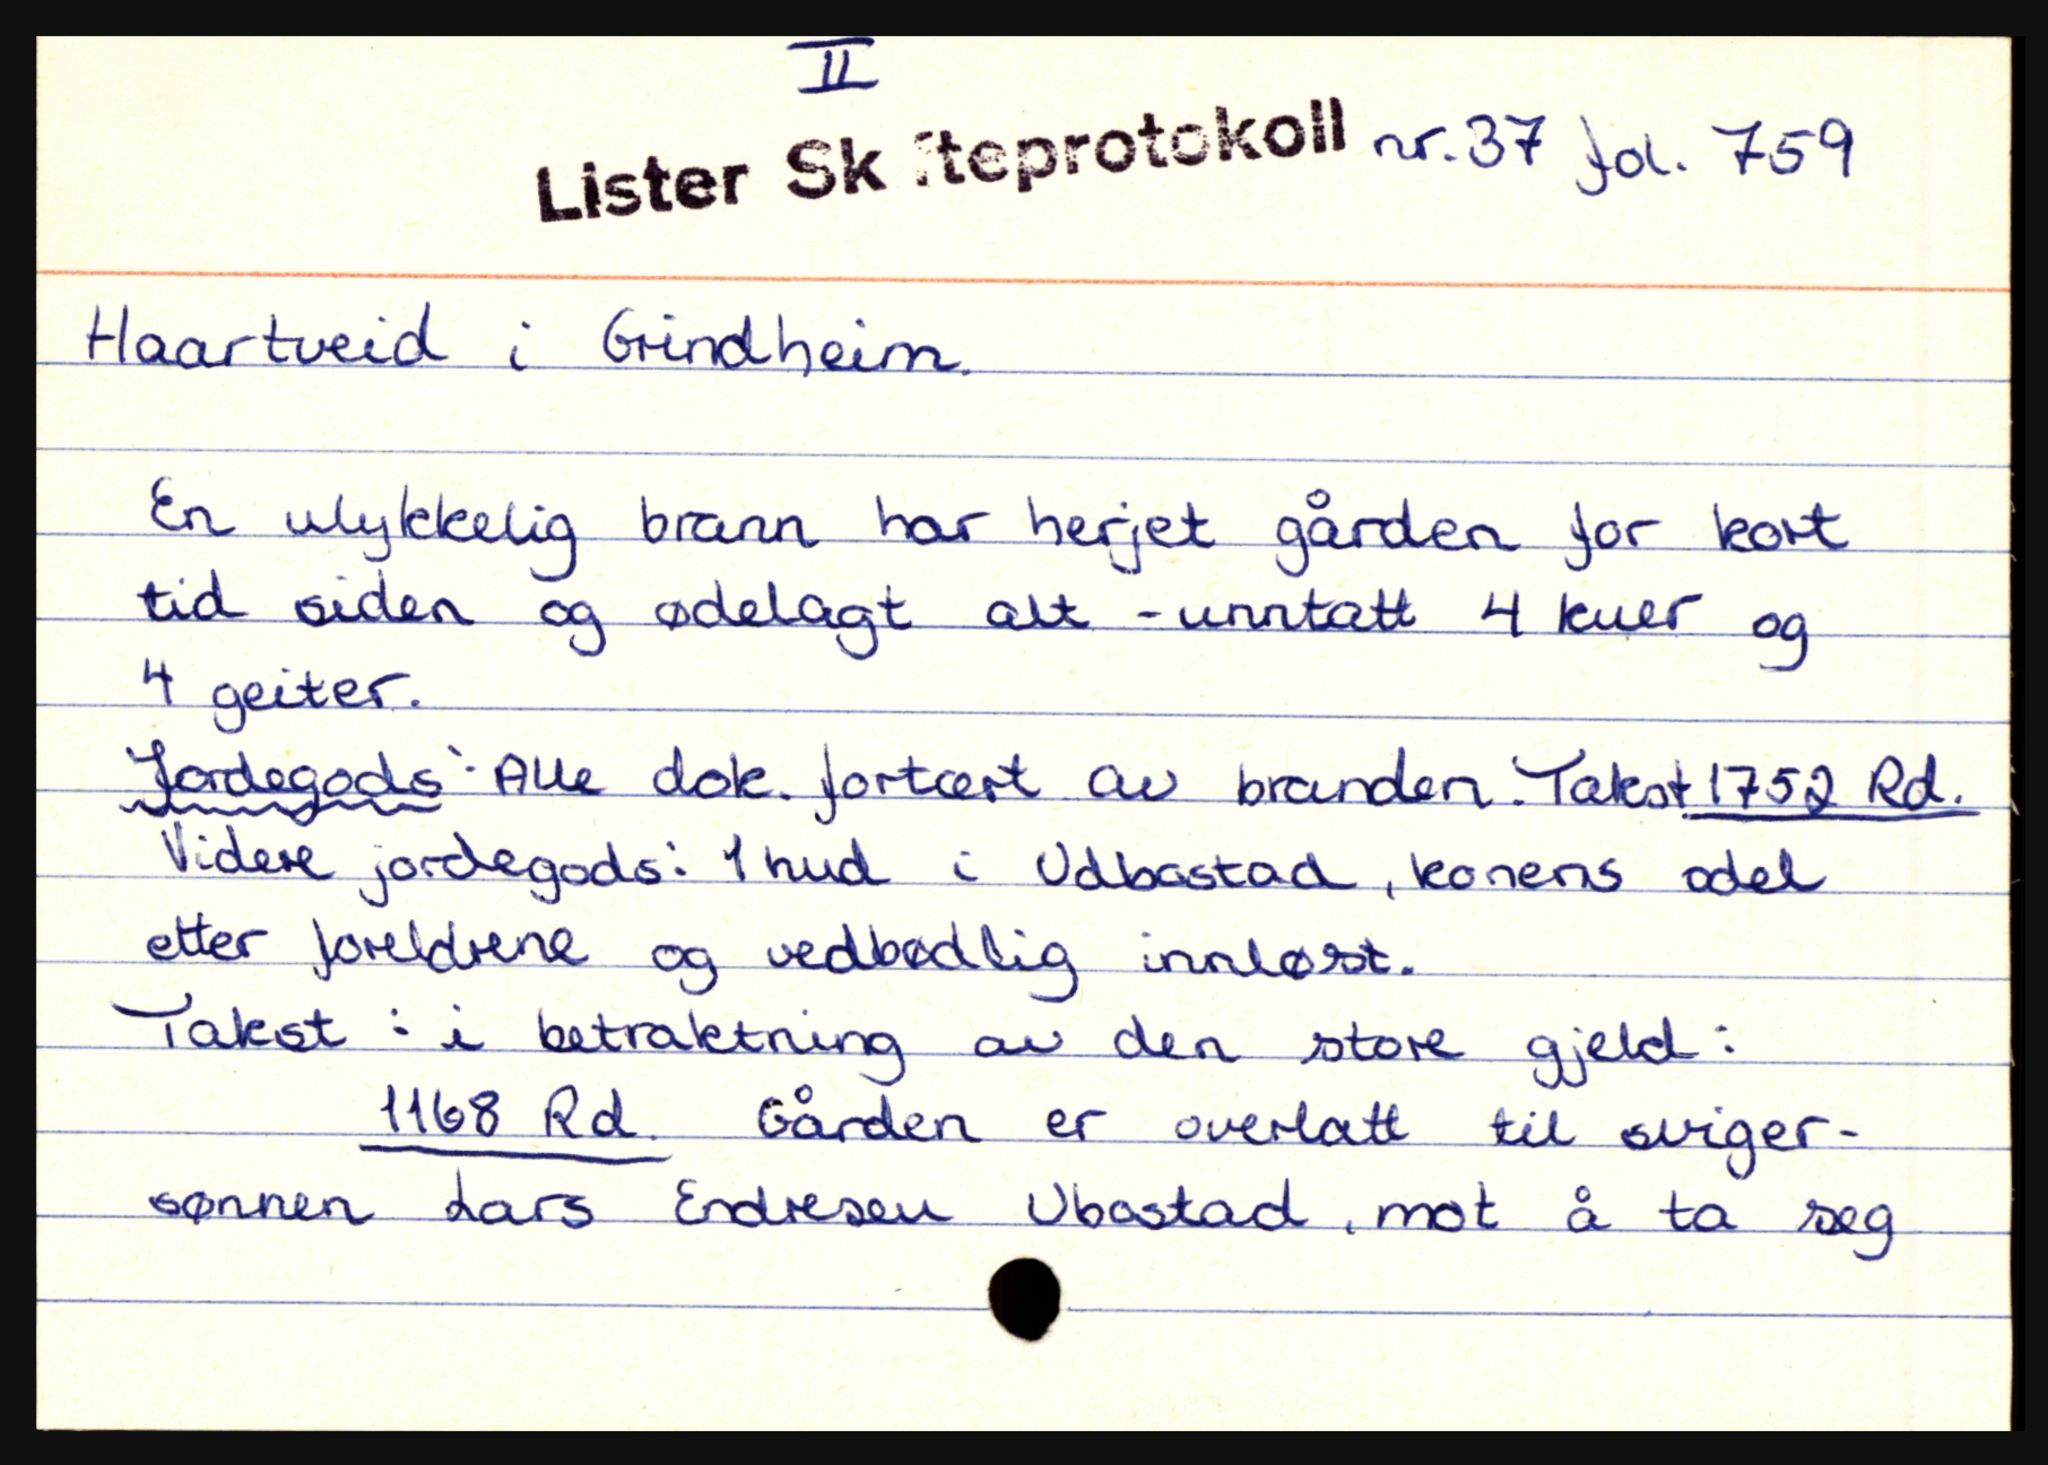 II
Lister Skifteprotokoll nr. 37 fol. 759
Haartveid i Grindheim.
En ulykkelig brann har herjet gården for kort
tid siden og ødelagt alt - unntatt 4 kuer og
4 geiter.
Jordegods: Alle dok. fortært av branden. Takst 1752 Rd.
Videre jordegods: 1 hud i Udbostad, konens odel
etter foreldrene og vedbødlig innløst.
Takst : i betraktning av den store gjeld:
1168 Rd. Gården er overlatt til sviger-
sønnen Lars Endresen Ubostad, mot å ta seg